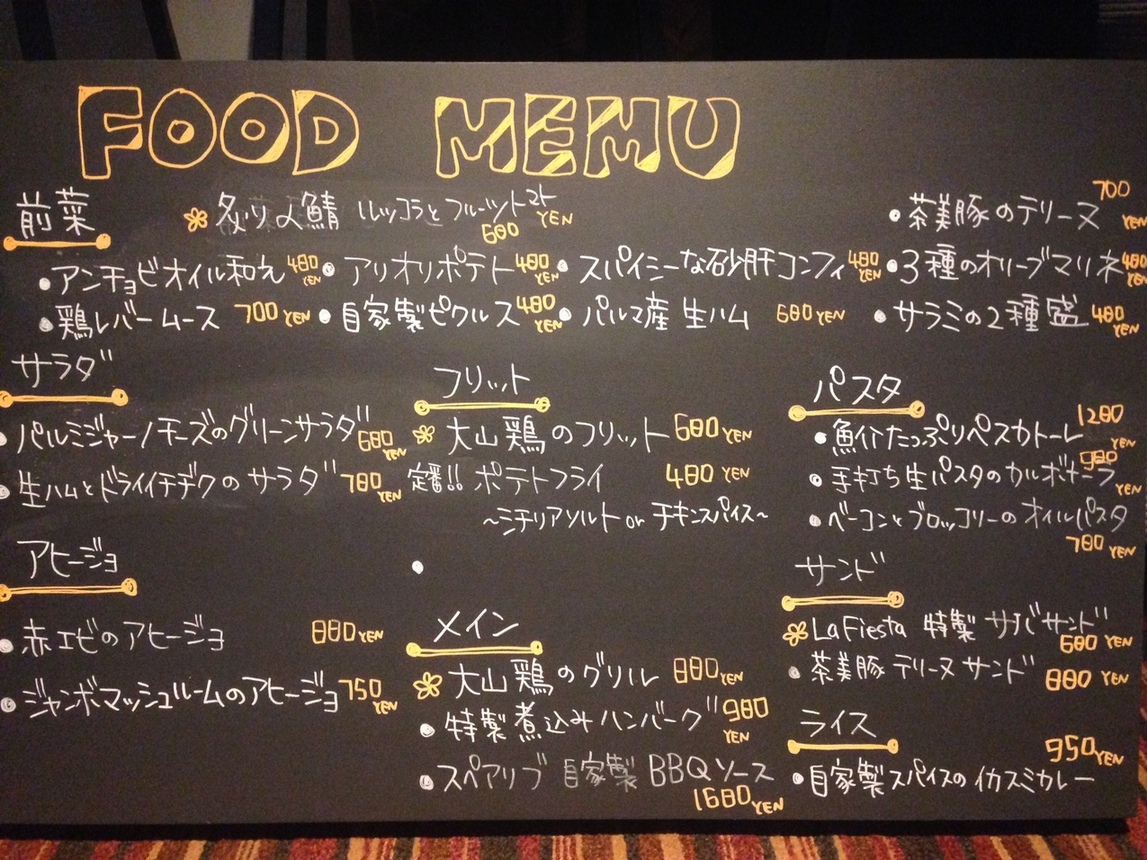 FOOD MEMU
前菜
炙り〆鯖 ルッコラとフルーツトマト 680 YEN
茶美豚のテリーヌ 700 YEN
アンチョビオイル和え 480 YEN
アリオリポテト 480 YEN
スパイシーな砂肝コンフィ 480 YEN
3種のオリーブマリネ 480 YEN
鶏レバームース 700 YEN
自家製ピクルス 480 YEN
パルマ産 生ハム 680 YEN
サラミの2種盛 480 YEN
サラダ
パルミジャーノチーズのグリーンサラダ 680 YEN
生ハムとドライイチヂクの サラダ 780 YEN
アヒージョ
赤エビのアヒージョ 880 YEN
ジャンボマッシュルームのアヒージョ 750 YEN
フリット
大山鶏のフリット 680 YEN
定番!! ポテトフライ 480 YEN
~シチリアソルト or チキンスパイス~
メイン
大山鶏のグリル 880 YEN
特製煮込みハンバーグ 980 YEN
スペアリブ 自家製 BBQソース
1680 YEN
パスタ
魚介たっぷりペスカトーレ 1280 YEN
手打ち生パスタのカルボナーラ 980 YEN
ベーコンとブロッコリーの オイルパスタ
780 YEN
サンド
La Fiesta 特製 サバサンド 680 YEN
茶美豚 テリーヌ サンド 880 YEN
ライス
自家製スパイスの イカスミカレー 950 YEN